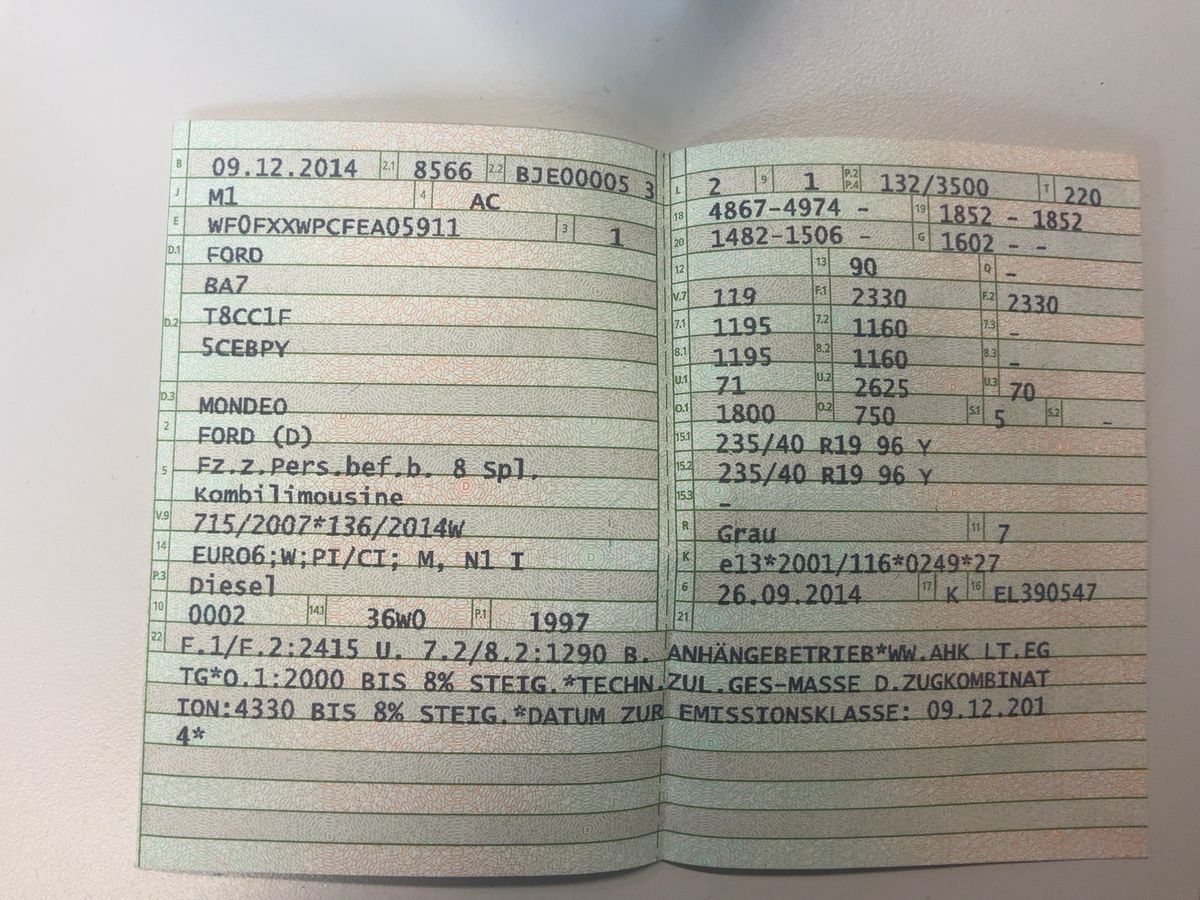 B 09.12.2014 2.1 8566 2.2 BJE00005 3
J M1 4 AC
E WF0FXXWPCFEA05911 3 1
D.1 FORD
BA7
D.2 T8CC1F
5CEBPY
D.3 MONDEO
2 FORD (D)
5 Fz.z.Pers.bef.b. 8 Spl.
Kombilimousine
V.9 715/2007*136/2014W
14 EURO6;W;PI/CI; M, N1 I
P.3 Diesel
10 0002 14.1 36W0 P.1 1997
L 2 9 1 P.2 P.4 132/3500 T 220
18 4867-4974 - 19 1852 - 1852
20 1482-1506 - G 1602 - -
12 13 90 Q -
V.7 119 F.1 2330 F.2 2330
7.1 1195 7.2 1160 7.3 -
8.1 1195 8.2 1160 8.3 -
U.1 71 U.2 2625 U.3 70
O.1 1800 O.2 750 S.1 5 S.2 -
15.1 235/40 R19 96 Y
15.2 235/40 R19 96 Y
15.3 -
R Grau 11 7
K e13*2001/116*0249*27
6 26.09.2014 17 K 16 EL390547
21
22 F.1/F.2:2415 U. 7.2/8.2:1290 B. ANHÄNGEBETRIEB*WW.AHK LT.EG
TG*O.1:2000 BIS 8% STEIG.*TECHN.ZUL.GES-MASSE D.ZUGKOMBINAT
ION:4330 BIS 8% STEIG.*DATUM ZUR EMISSIONSKLASSE: 09.12.201
4*